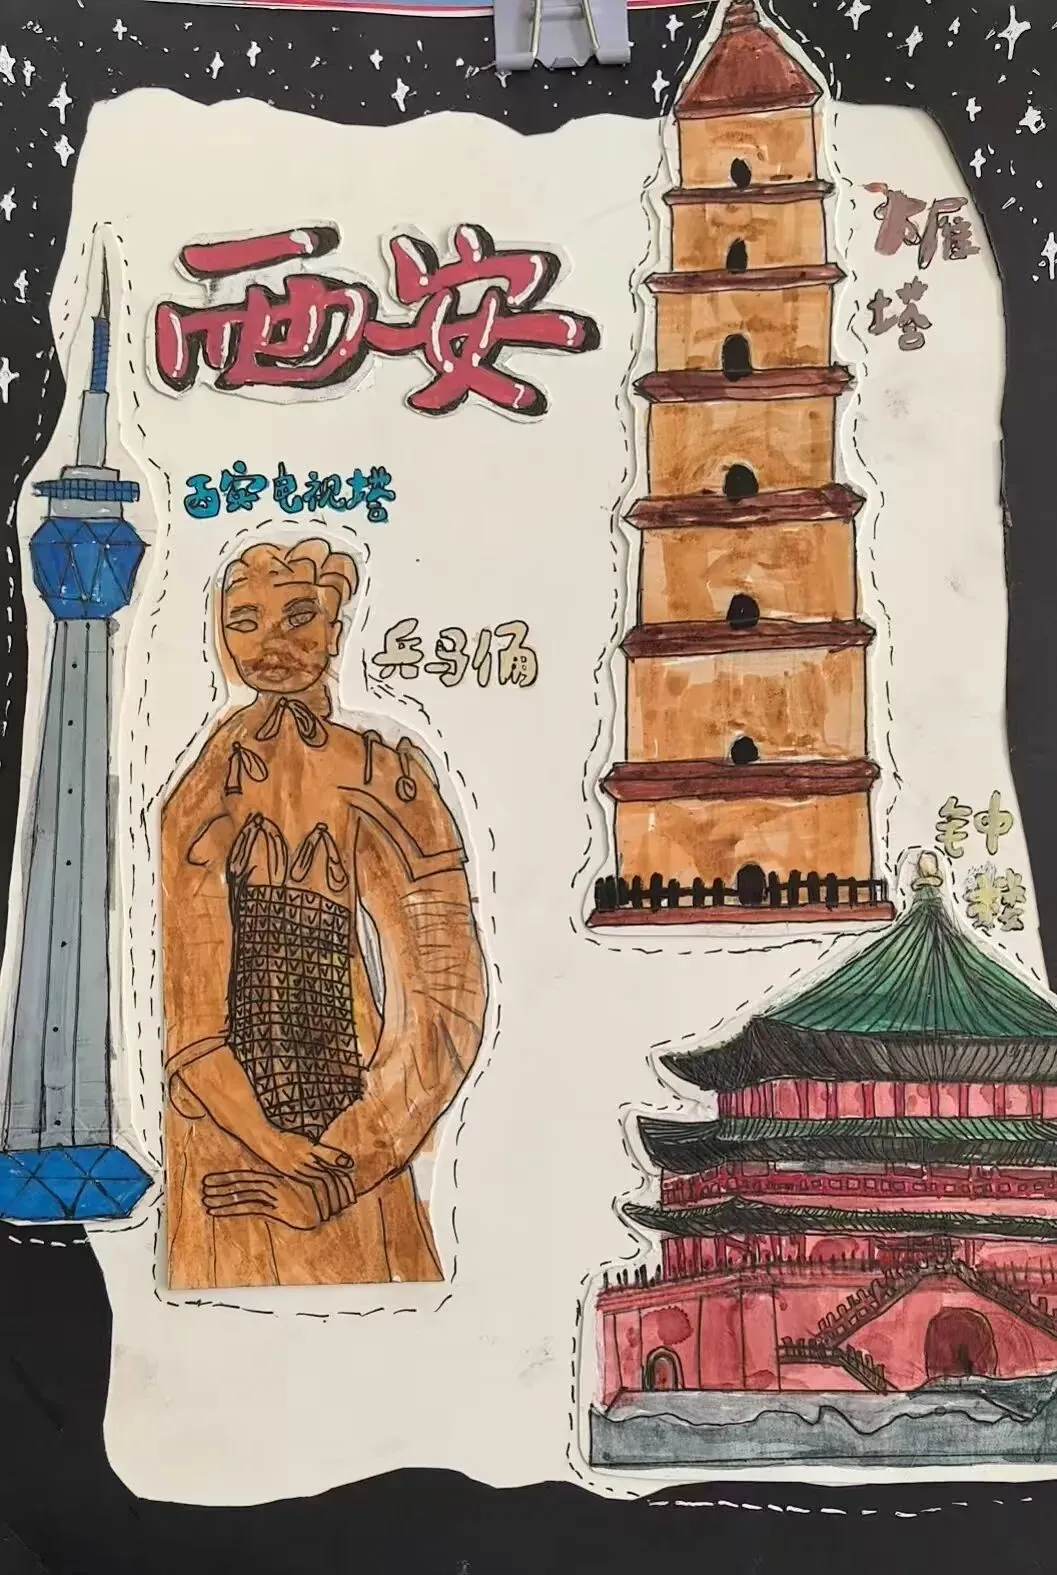 西安
大雁
塔
西安电视塔
兵马俑
钟
楼